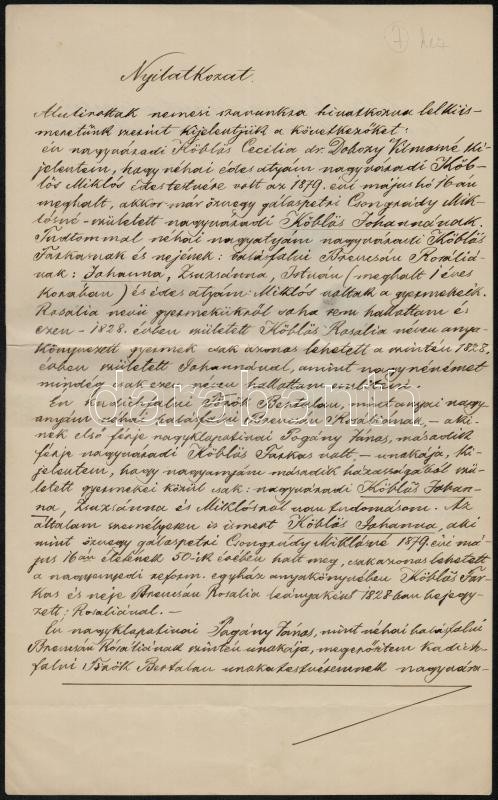 Nyilatkozat.
Alulirottak nemesi szavunkra hivatkozva lelkiis-
meretünk szerint kijelentjük a következőket:
én nagyváradi Köblös Cecilia dr. Dobozy Vilmosné ki-
jelentem, hogy néhai édes atyám nagyváradi Köb-
lös Miklós édestestvére volt az 1879. évi május hó 16-án
meghalt, akkor már özvegy gálaspetri Csongrády Mik-
lósné-született nagyváradi Köblös Johannának.
Tudtommal néhai nagyatyám nagyváradi Köblös
Farkasnak és nejének: balásfalvi Brencsán Rozáliá-
nak: Johanna, Zsuzsánna, István (meghalt 1 éves
korában) és édes atyám: Miklós voltak a gyermekeik.
Rosalia nevű gyermekükről soha sem hallottam és
ezen - 1828. évben született Köblös Rosalia néven anya-
könyvezett gyermek csak azonos lehetett a szintén 1828.
évben született Johannával, amint nagynénémet
mindég csak ezen néven hallottam említeni.
Én kadicsfalvi Török Bertalan, mint anyai nagy-
anyám néhai balásfalvi Brencsán Rozáliának, - aki-
nek első férje nagyklapatinai Pogány János, második
férje nagyváradi Köblös Farkas volt, - unokája, ki-
jelentem, hogy nagyanyám második házasságából szü-
letett gyermekei közül csak: nagyváradi Köblös Johan-
na, Zsuzsánna és Miklósról van tudomásom. Az
általam személyesen is ismert Köblös Johanna, aki
mint özvegy gálaspetri Csongrády Miklósné 1879. évi má-
jus 16-án életének 50-ik évében halt meg, csak azonos lehetett
a nagyenyedi reform. egyház anyakönyvében Köblös Far-
kas és neje Brencsán Rosalia leányaként 1828-ban bejegy-
zett: Rosaliával. -
Én nagyklapatinai Pogány János, mint néhai balásfalvi
Brencsán Rózáliának szintén unokája, megerősítem kadics-
falvi Török Bertalan unokatestvéremnek nagyvára-
darabanth